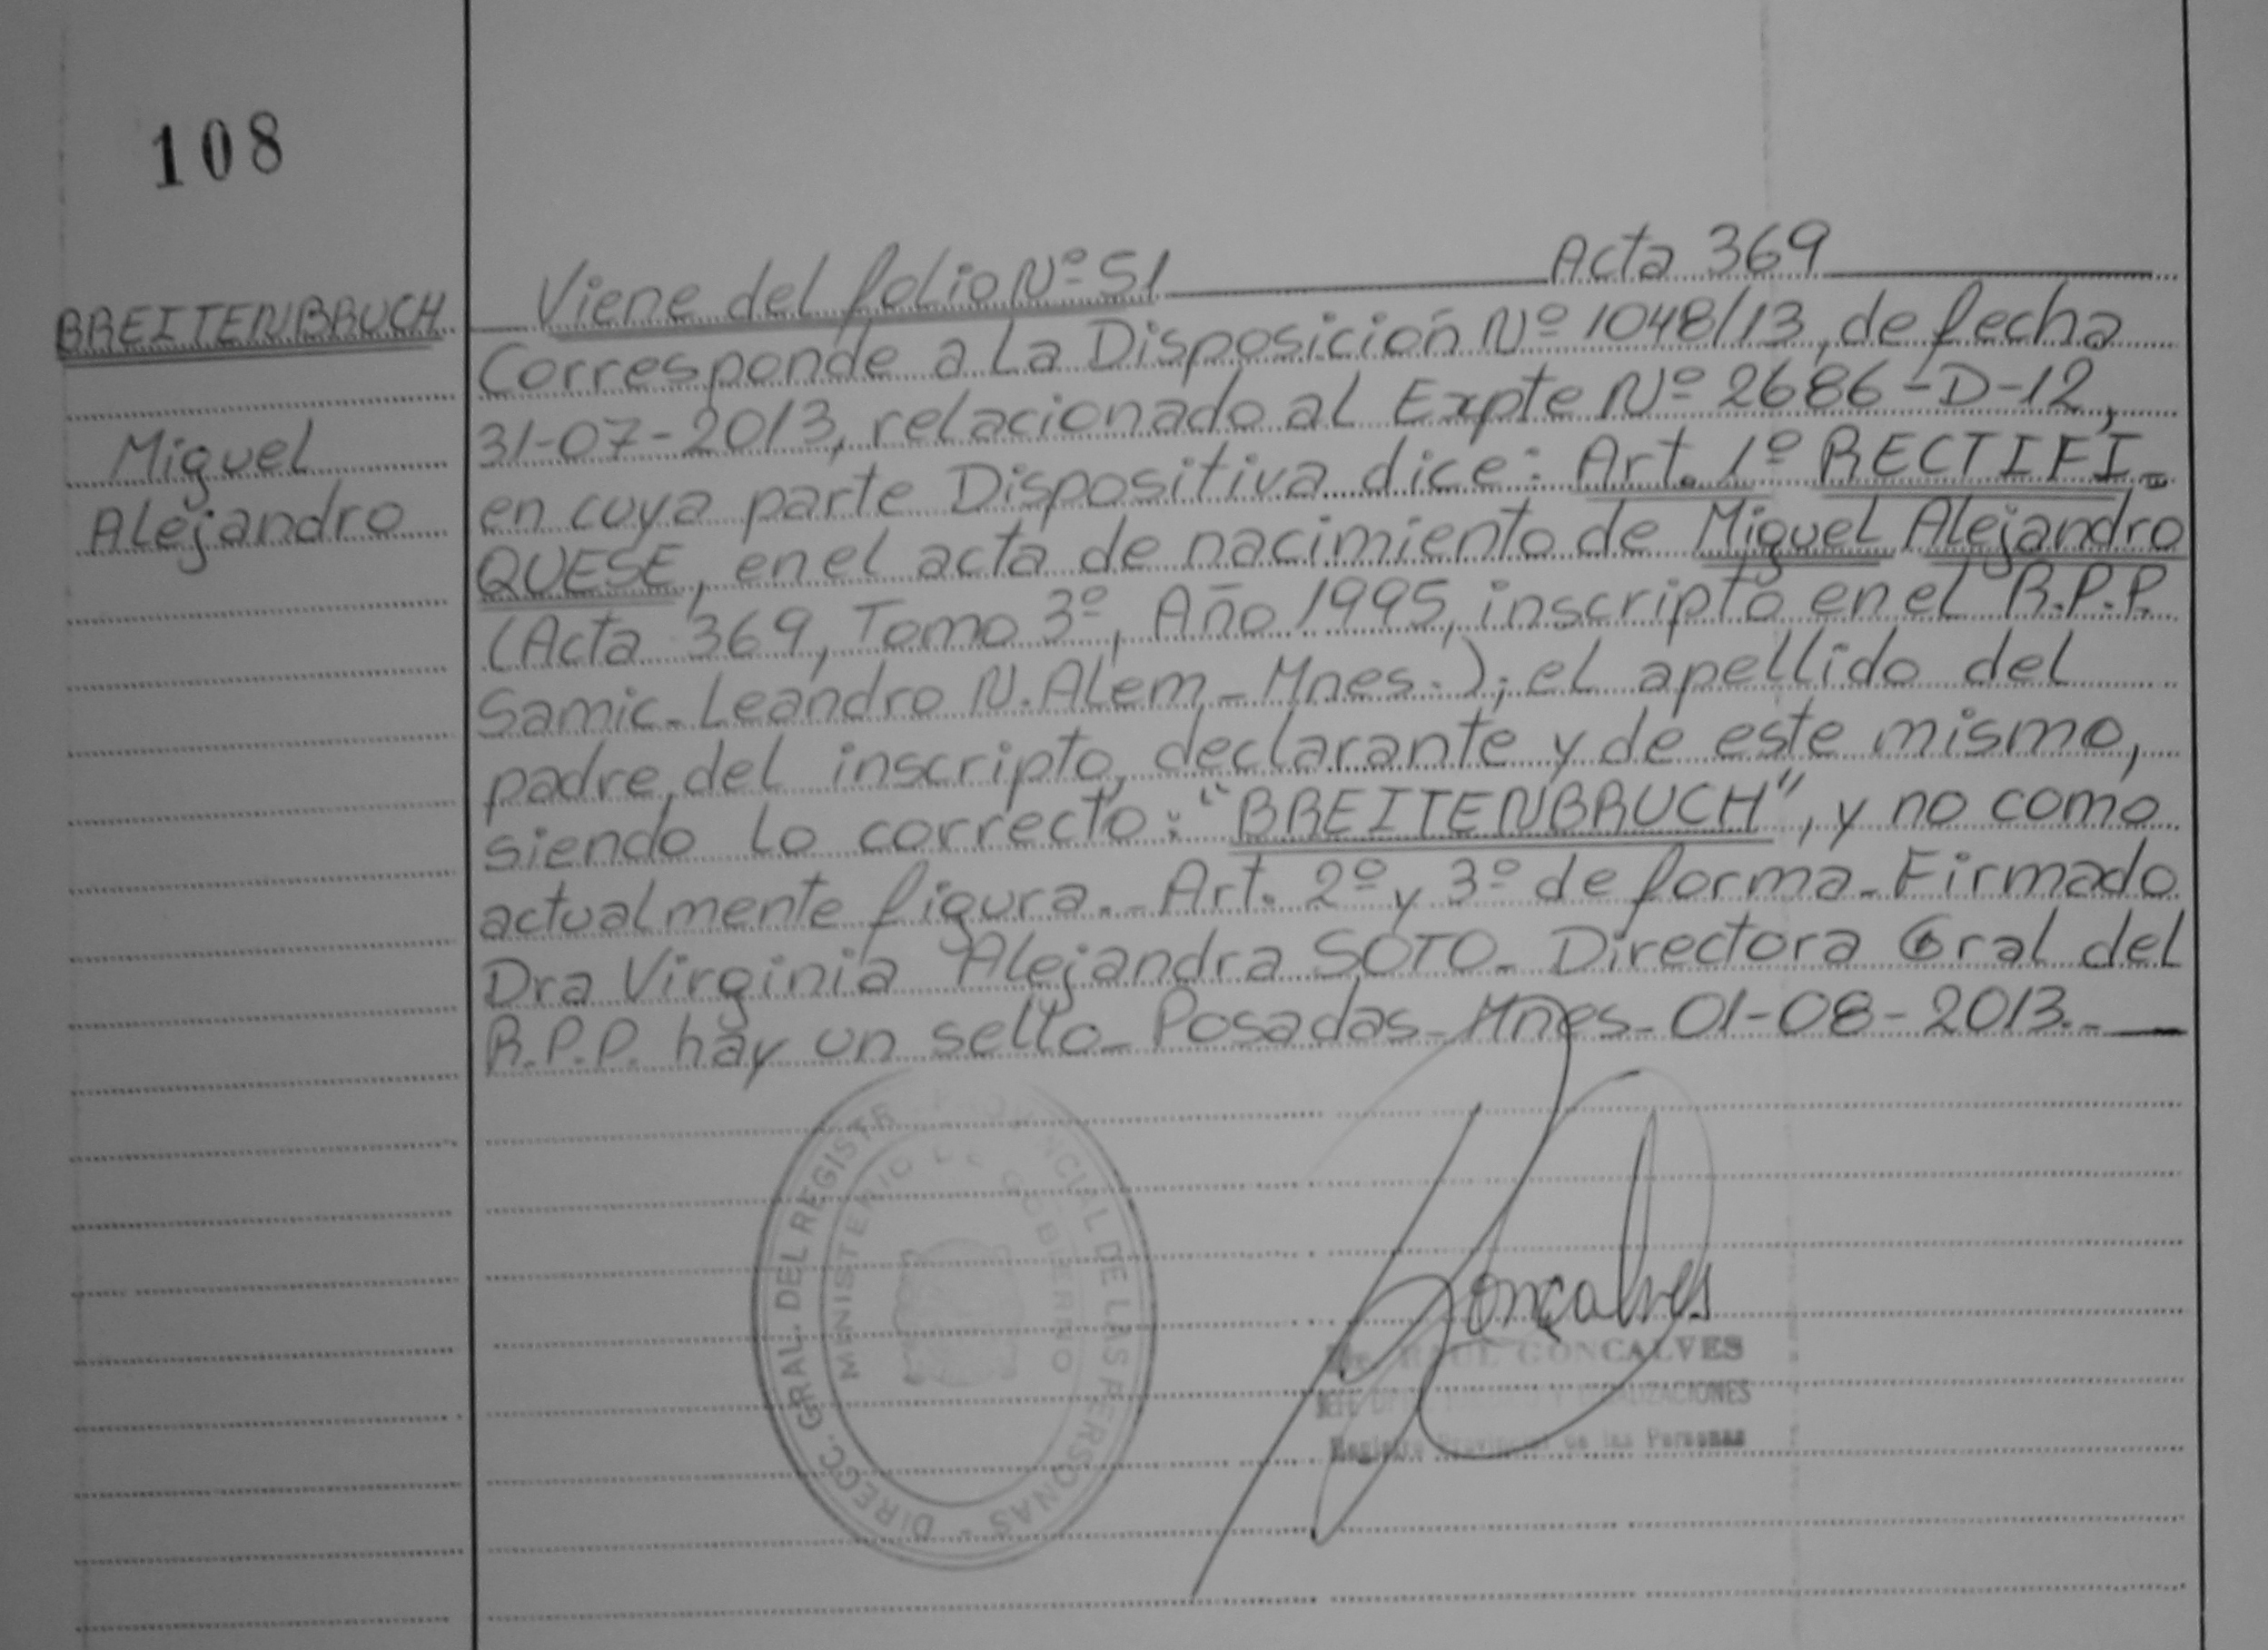 108
BREITENBRUCH
Miguel
Alejandro
Viene del folio Nº 51 Acta 369
Corresponde a la Disposición Nº 1048/13, de fecha
31-07-2013, relacionado al Expte Nº 2686-D-12,
en cuya parte Dispositiva dice: Art. 1º RECTIFI-
QUESE, en el acta de nacimiento de Miguel Alejandro
(Acta 369, Tomo 3º, Año 1995, inscripto en el R.P.P.
Samic- Leandro N. Alem - Mnes.); el apellido del
padre, del inscripto, declarante y de este mismo,
siendo lo correcto: "BREITENBRUCH", y no como
actualmente figura.- Art. 2º y 3º de forma- Firmado
Dra Virginia Alejandra SOTO- Directora Gral del
R.P.P. hay un sello- Posadas- Mnes- 01-08-2013.-
DIRECC. GRAL. DEL REGISTR NCIAL DE LAS PERSONAS -
MINISTERIO DE GOBIERNO
Gonçalves
RAUL GONCALVES
Registro Provincial de las Personas